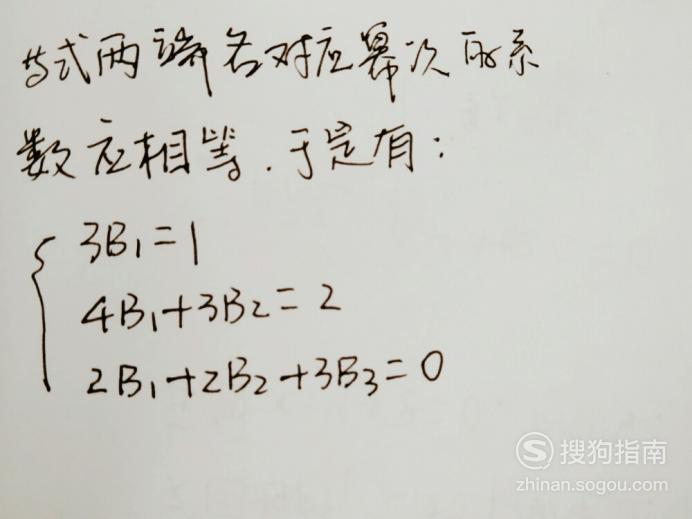 等式两端各对应幂次的系
数应相等.于是有:
3B₁=1
4B₁+3B₂=2
2B₁+2B₂+3B₃=0
搜狗指南
zhinan.sogou.com